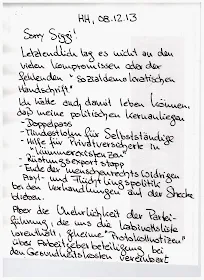 HH, 08.12.13
Sorry Siggi!
Letztendlich lag es nicht an den
vielen Kompromissen oder der
fehlenden "sozialdemokratischen
Handschrift".
Ich hätte auch damit leben können,
daß meine politischen Kernanliegen
- Doppelpass
- Mindestlohn für Selbstständige
- Hilfe für Privatversicherte in
"Kümmerexistenzen"
- Rüstungsexportstopp
- Ende der menschenrechtswidrigen
Asyl- und Flüchtlingspolitik
bei den Verhandlungen auf der Strecke
bleiben.
Aber die Unehrlichkeit der Partei-
führung, die uns die Kabinettsliste
vorenthält, geheime "Protokollnotizen"
über Arbeitgeberbeteiligung bei
den Gesundheitskosten vereinbart